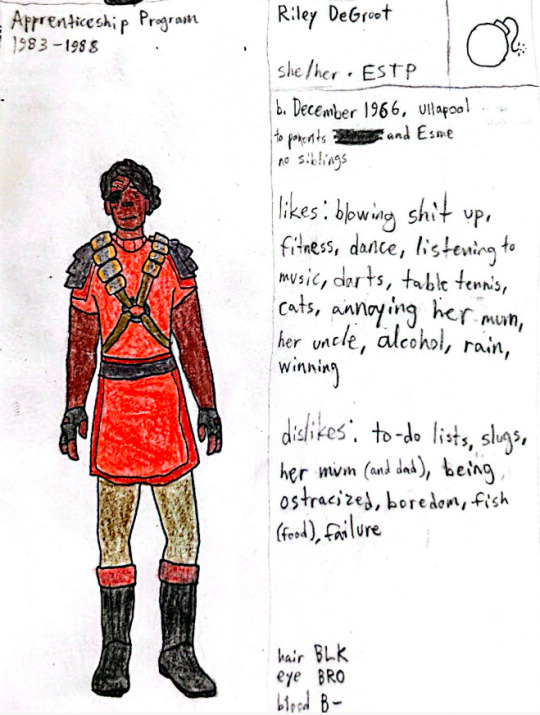 Apprenticeship Program
1983-1988
Riley DeGroot
she/her • ESTP
b. December 1966, Ullapool
to parents and Esme
no siblings
likes: blowing shit up,
fitness, dance, listening to
music, darts, table tennis,
cats, annoying her mum,
her uncle, alcohol, rain,
winning
dislikes: to-do lists, slugs,
her mum (and dad), being
ostracized, boredom, fish
(food), failure
hair BLK
eye BRO
blood B-